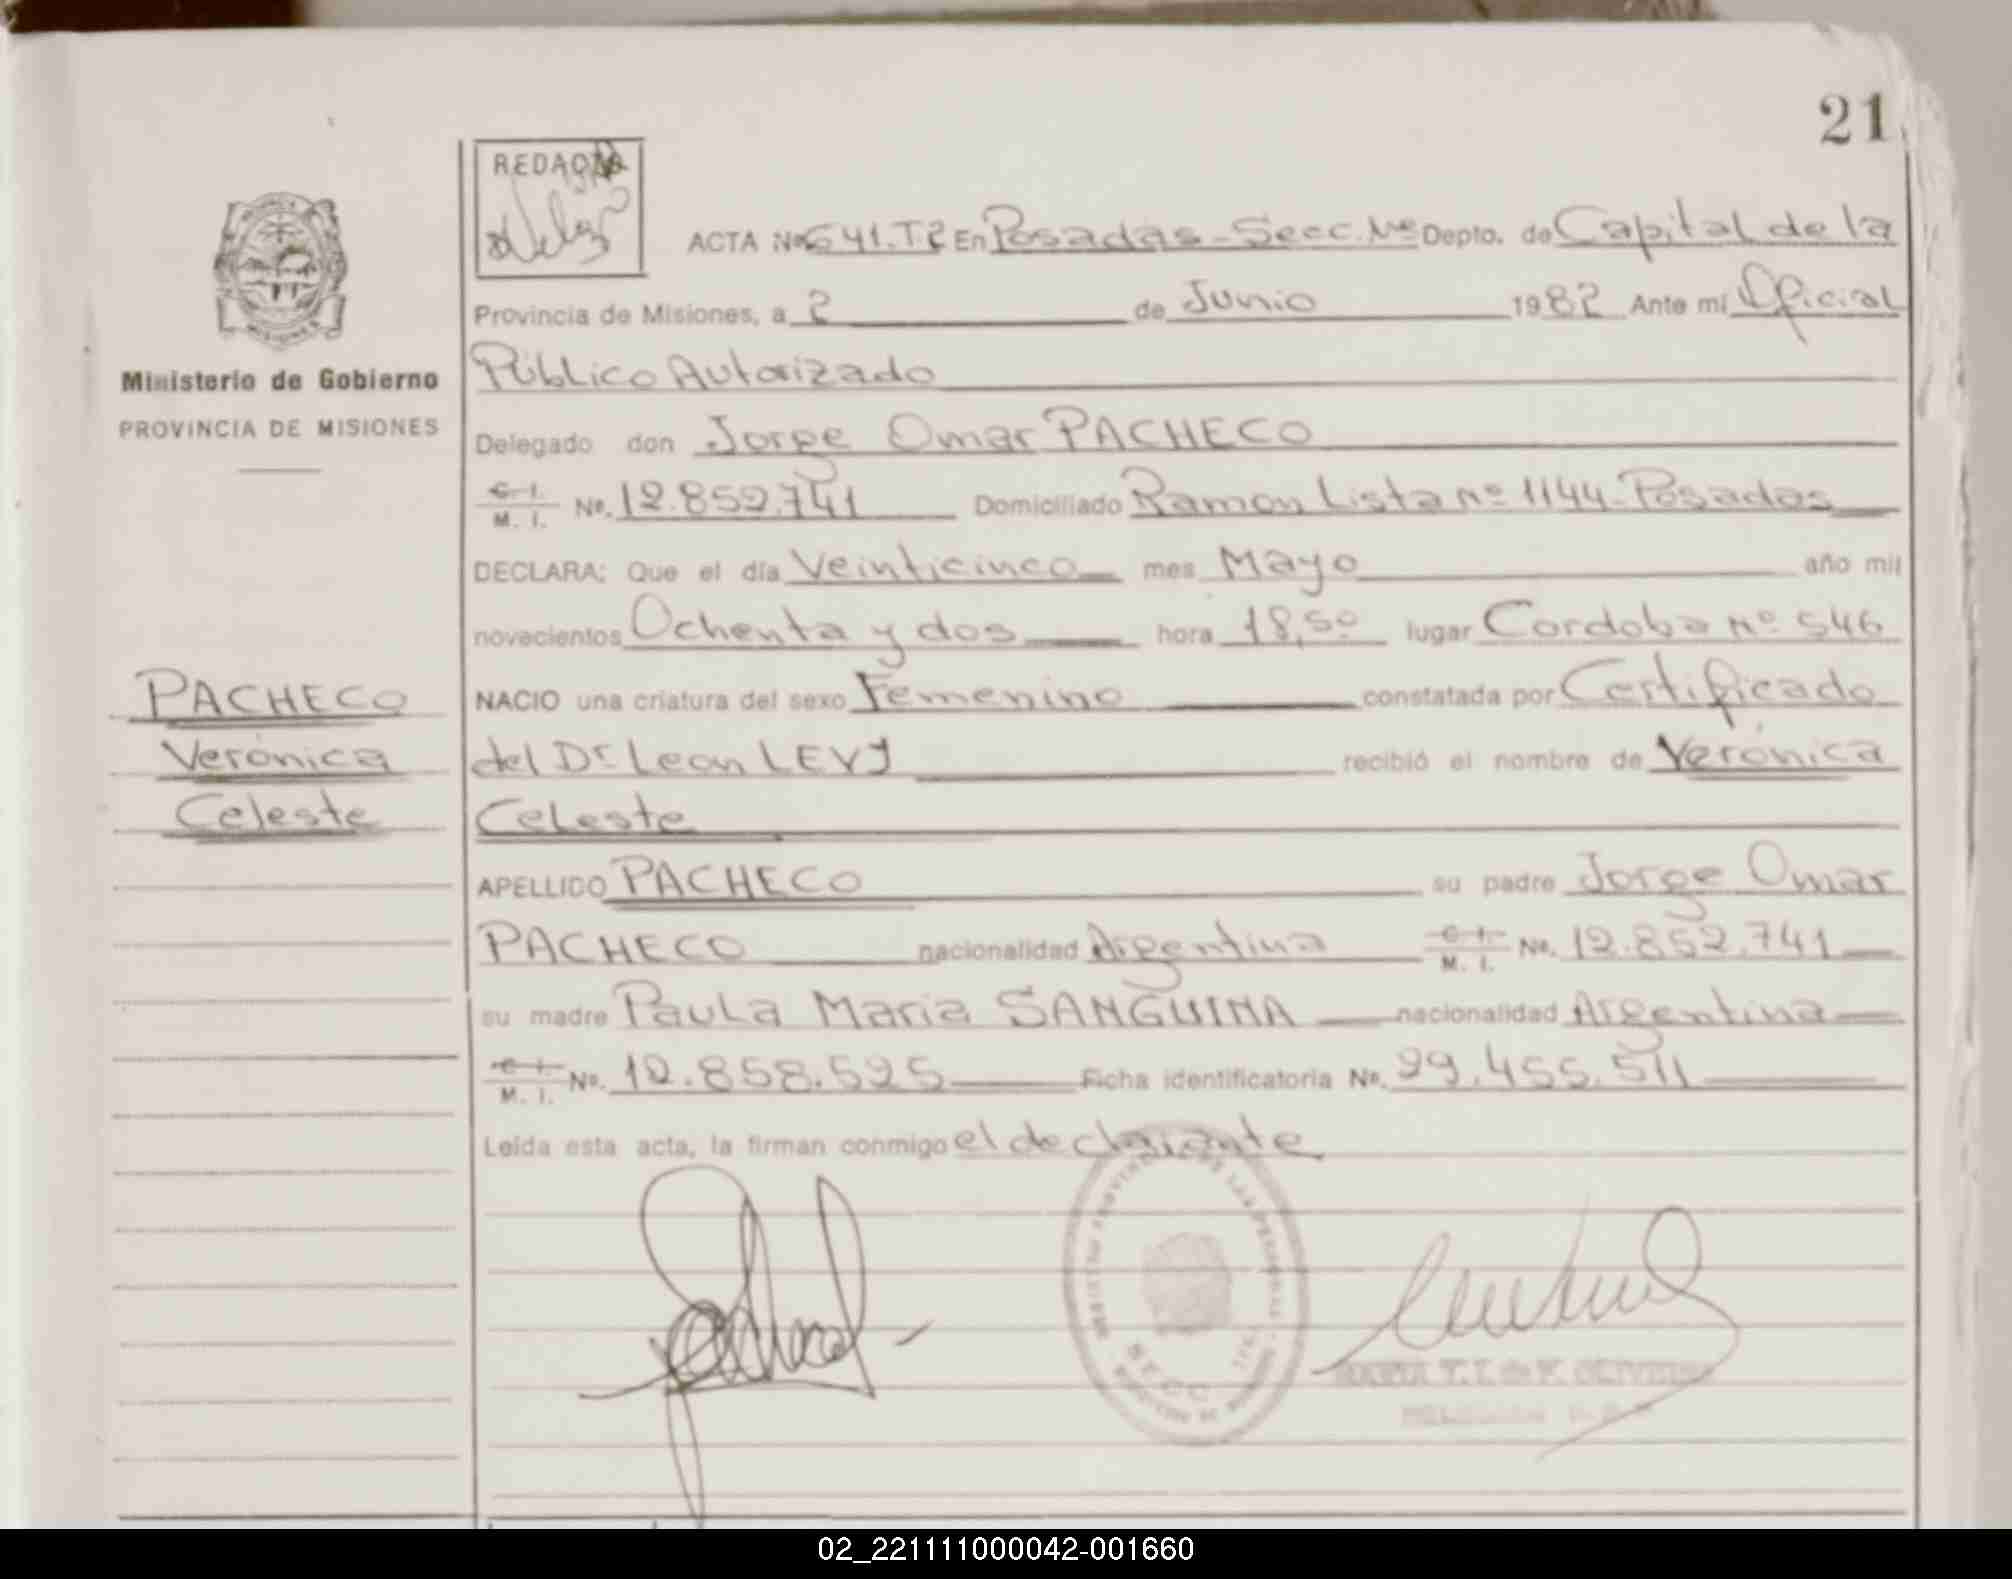 21
REDACTO
ACTA No. 641.T2 En Posadas-Secc. Nº Depto. de Capital de la
Provincia de Misiones, a 2 de Junio 1982 Ante mí Oficial
Público Autorizado
Ministerio de Gobierno
PROVINCIA DE MISIONES
Delegado don Jorge Omar PACHECO
C. I.
M. I. No. 12.852.741 Domiciliado Ramon Lista nº 1144-Posadas
DECLARA: Que el día Veinticinco mes Mayo año mil
novecientos Ochenta y dos hora 18,50 lugar Cordoba nº 546
PACHECO
Verónica
Celeste
NACIO una criatura del sexo Femenino constatada por Certificado
del Dr Leon LEVY recibió el nombre de Verónica
Celeste
APELLIDO PACHECO su padre Jorge Omar
PACHECO nacionalidad Argentina C. I.
M. I. No. 12.852.741
su madre Paula Maria SANGUINA nacionalidad Argentina
C. I.
M. I. No. 12.858.525 Ficha identificatoria No. 29.455.511
Leída esta acta, la firman conmigo el declarante
02_221111000042-001660